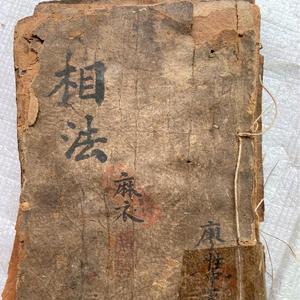 相法
麻衣
廖